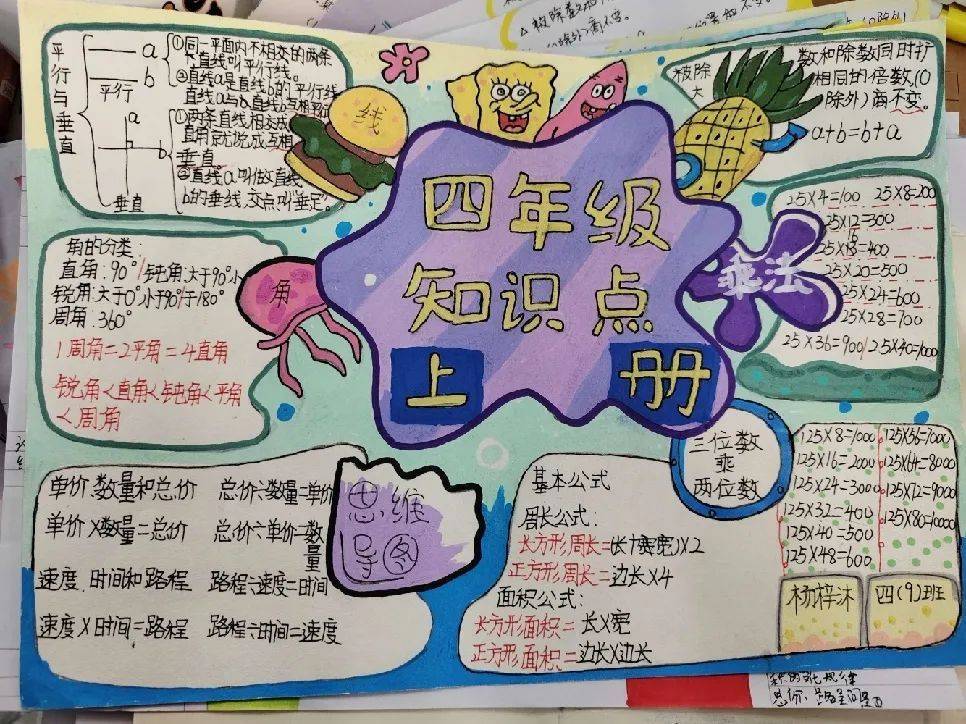 四年级
知识点
上册
平行与垂直
a
b
平行
a
b
垂直
①同一平面内不相交的两条
直线叫平行线。
②直线a是直线b的平行线
直线a与b直线b互相平行
①两条直线相交成
直角就说成互相
垂直
②直线a叫做直线
b的垂线,交点叫“垂足”。
线
被除
数和除数同时行
相同的倍数(0
除外)商不变。
a+b=b+a
角的分类:
直角:90° 钝角:大于90°小
锐角:大于0°小于90°于180°
周角:360°
1周角=2平角=4直角
锐角<直角<钝角<平角
<周角
角
乘法
25×4=100 25×8=200
25×12=300
25×16=400
25×20=500
25×24=600
25×28=700
25×36=900 25×40=1000
单价.数量和总价 总价÷数量=单价
单价×数量=总价 总价÷单价=数
量
速度.时间和路程 路程÷速度=时间
速度×时间=路程 路程÷时间=速度
思维
导图
基本公式
周长公式:
长方形周长=(长+宽)×2
正方形周长=边长×4
面积公式:
长方形面积=长×宽
正方形面积=边长×边长
三位数
乘
两位数
125×8=1000 125×56=7000
125×16=2000 125×64=8000
125×24=3000 125×72=9000
125×32=400 125×80=10000
125×40=500
125×48=600
杨梓沐
四(9)班